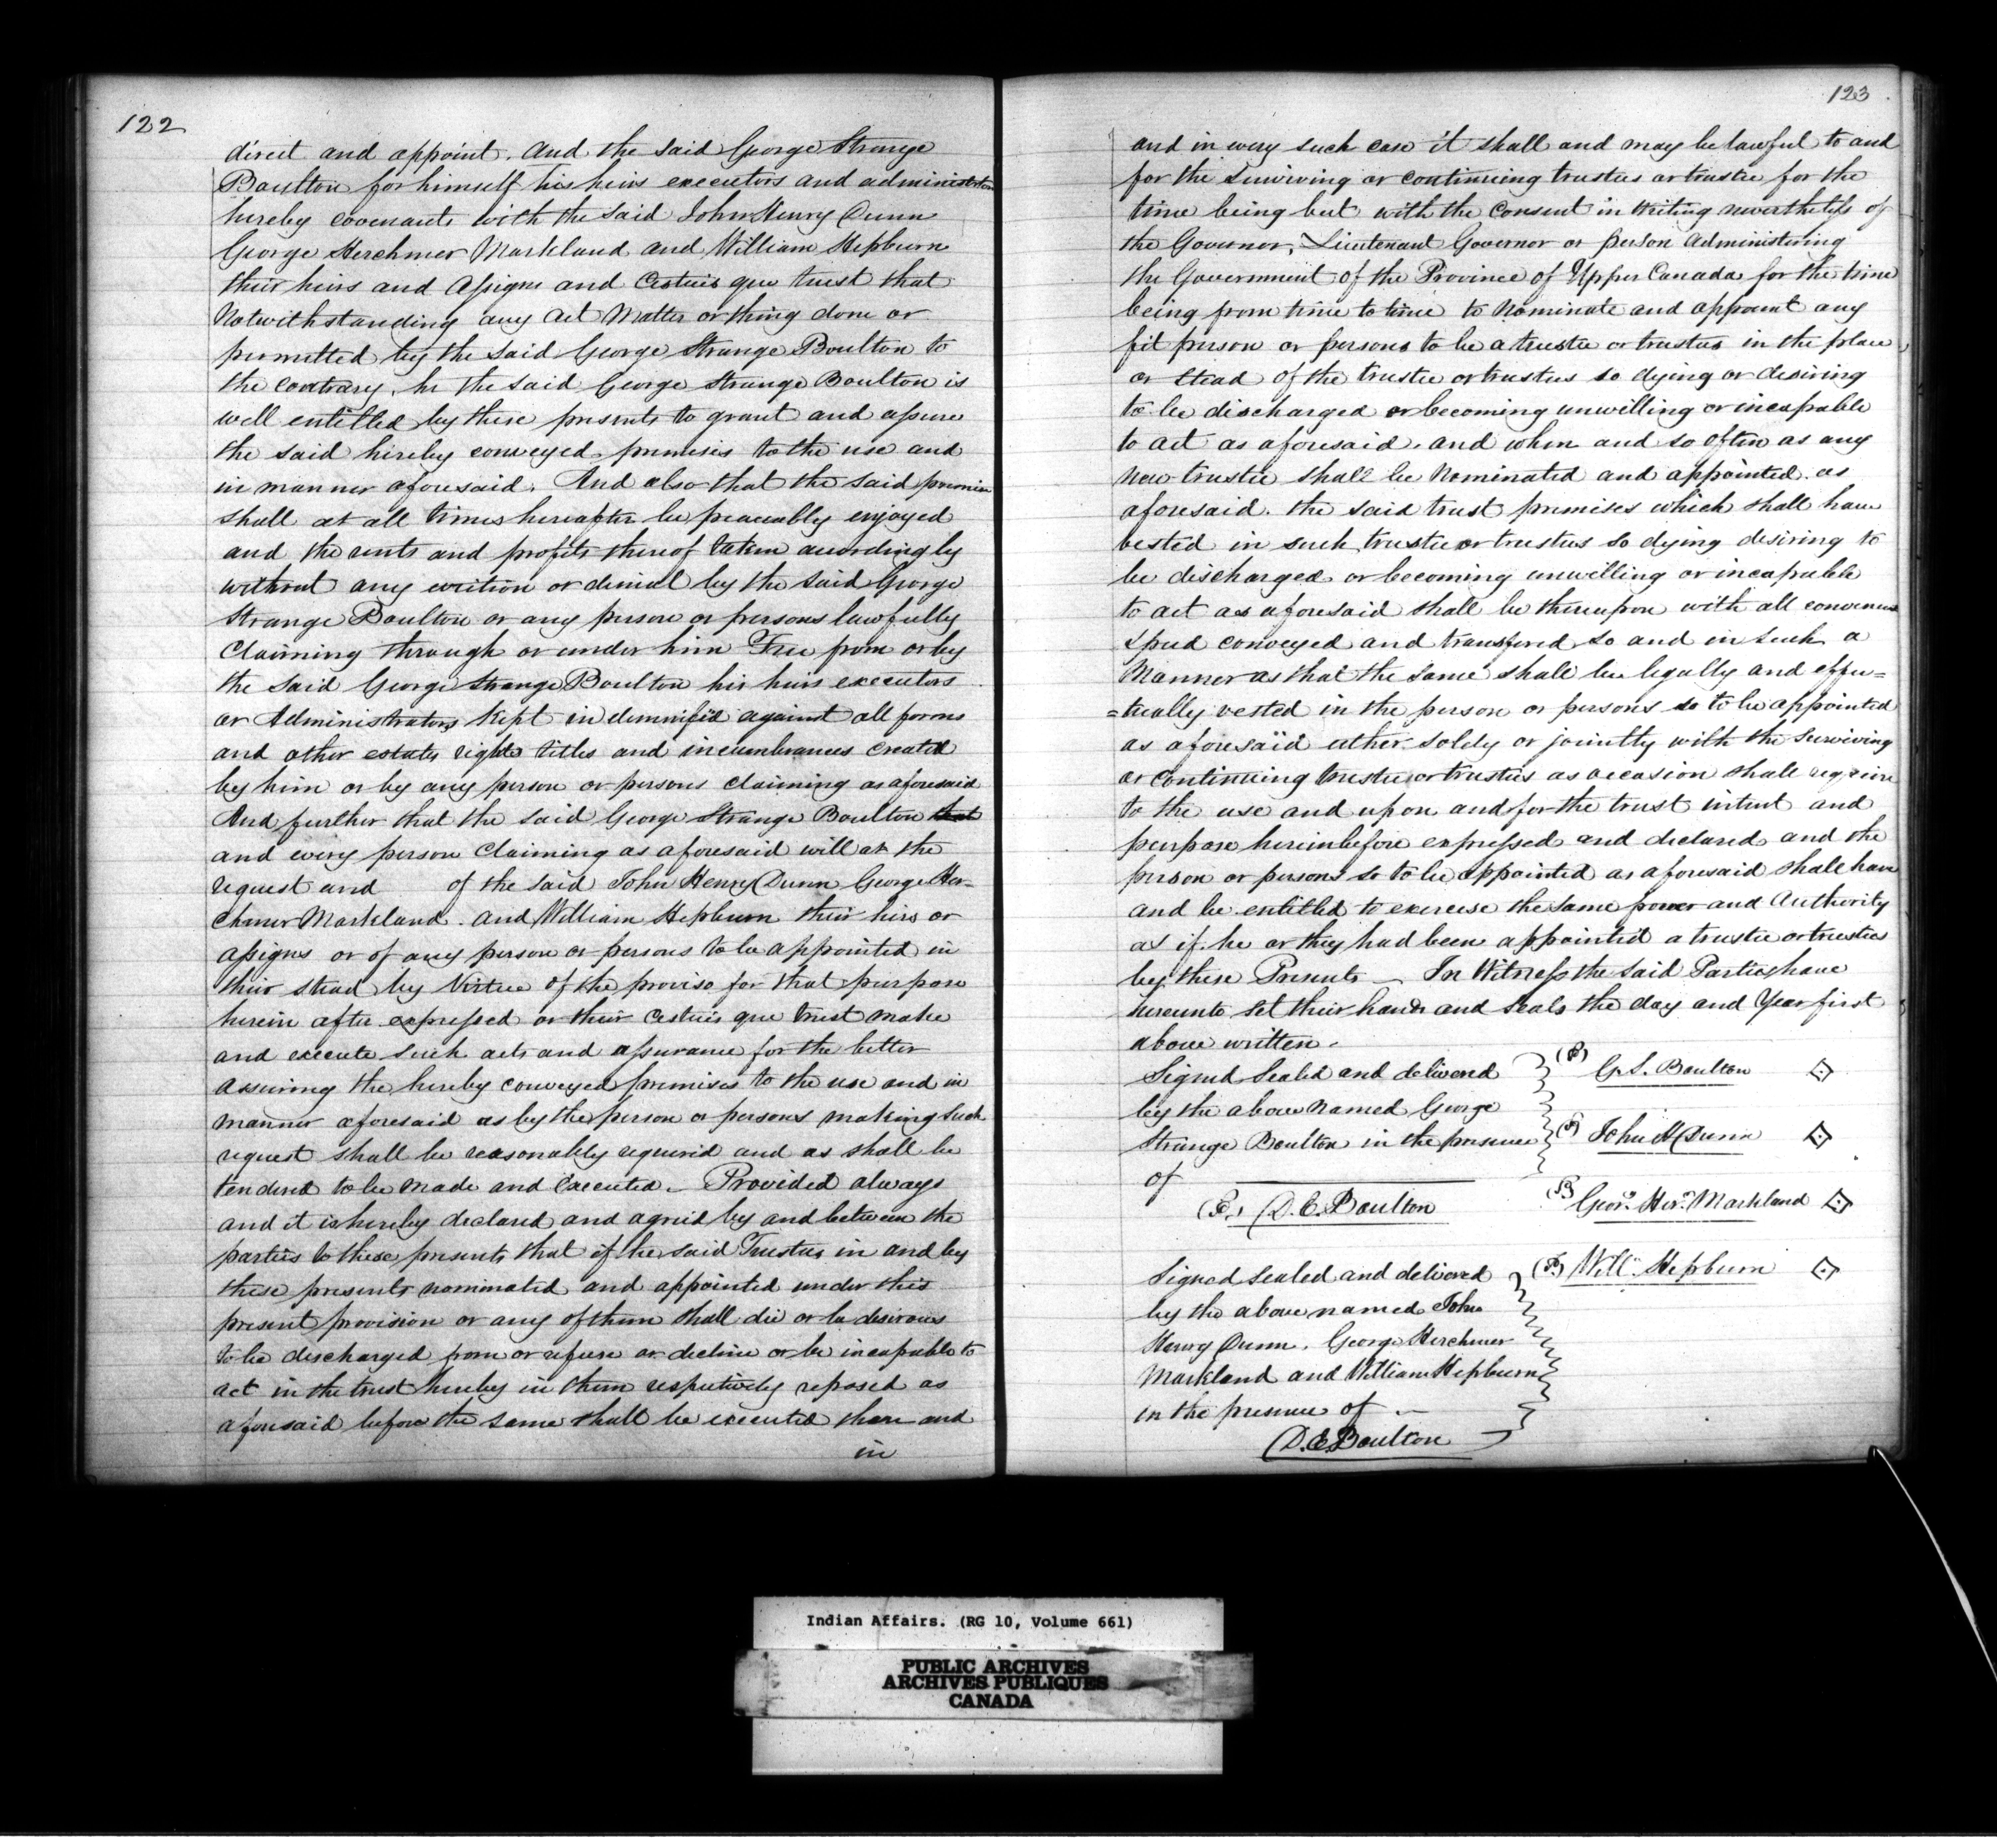 122
direct and appoint. And the said George Strange
Boulton for himself his heirs executors and administrators
hereby covenants with the said John Henry Dunn
George Herchmer Markland and William Hepburn
their heirs and assigns and Cestuis que trust that
Notwithstanding any act Matter or thing done or
permitted by the said George Strange Boulton to
the contrary, he the said George Strange Boulton is
well entitled by these presents to grant and assure
the said hereby conveyed premises to the use and
in manner aforesaid. And also that the said premises
shall at all times hereafter be peaceably enjoyed
and the rents and profits thereof taken accordingly
without any eviction or denial by the said George
Strange Boulton or any person or persons lawfully
Claiming through or under him Free from or by
the said George Strange Boulton his heirs executors
or Administrators Kept indemnified against all forms
and other estates rights titles and incumbrances created
by him or by any person or persons claiming as aforesaid
And further that the said George Strange Boulton that
and every person Claiming as aforesaid will at the
request and of the said John Henry Dunn George Her-
chmer Markland. and William Hepburn their heirs or
assigns or of any person or persons to be appointed in
their stead by Virtue of the proviso for that purpose
herein after expressed or their cestuis que trust make
and execute such acts and assurance for the better
assuring the hereby conveyed premises to the use and in
manner aforesaid as by the person or persons making such
request shall be reasonably required and as shall be
tendered to be made and executed. Provided always
and it is hereby declared and agreed by and between the
parties to these presents that if the said Trustees in and by
these presents nominated and appointed under this
present provision or any of them shall die or be desirous
to be discharged from or refuse or decline or be incapable to
act in the trust hereby in them respectively reposed as
aforesaid before the same shall be executed then and
in
123
and in every such case it shall and may be lawful to and
for the surviving or continuing trustees or trustee for the
time being but with the consent in writing nevertheless of
the Governor, Lieutenant Governor or person Administering
the Government of the Province of Upper Canada for the time
being from time to time to Nominate and appoint any
fit person or persons to be a trustee or trustees in the place
or stead of the trustee or trustees so dying or desiring
to be discharged or becoming unwilling or incapable
to act as aforesaid. and when and so often as any
new trustee shall be Nominated and appointed as
aforesaid. the said trust premises which shall have
vested in such trustee or trustees so dying desiring to
be discharged or becoming unwilling or incapable
to act as aforesaid shall be thereupon with all convenient
speed conveyed and transfered so and in such a
Manner as that the same shall be legally and effec=
=tually vested in the person or persons so to be appointed
as aforesaid either solely or jointly with the surviving
or continuing trustee or trustees as occasion shall require
to the use and upon and for the trust intent and
purpose hereinbefore expressed and declared and the
person or persons so to be appointed as aforesaid shall have
and be entitled to exercise the same power and Authority
as if he or they had been appointed a trustee or trustees
by these Presents — In Witness the said Parties have
hereunto set their hands and Seals the day and Year first
above written.
Signed Sealed and delivered
by the above Named George
Strange Boulton in the presence
of
D. E. Boulton
G. S. Boulton
John H Dunn
Geoe. Her. Markland
Will. Hepburn
Signed Sealed and delivered
by the above named John
Henry Dunn, George Herchmer
Markland and William Hepburn
in the presence of —
D. E. Boulton
Indian Affairs. (RG 10, Volume 661)
PUBLIC ARCHIVES
ARCHIVES PUBLIQUES
CANADA